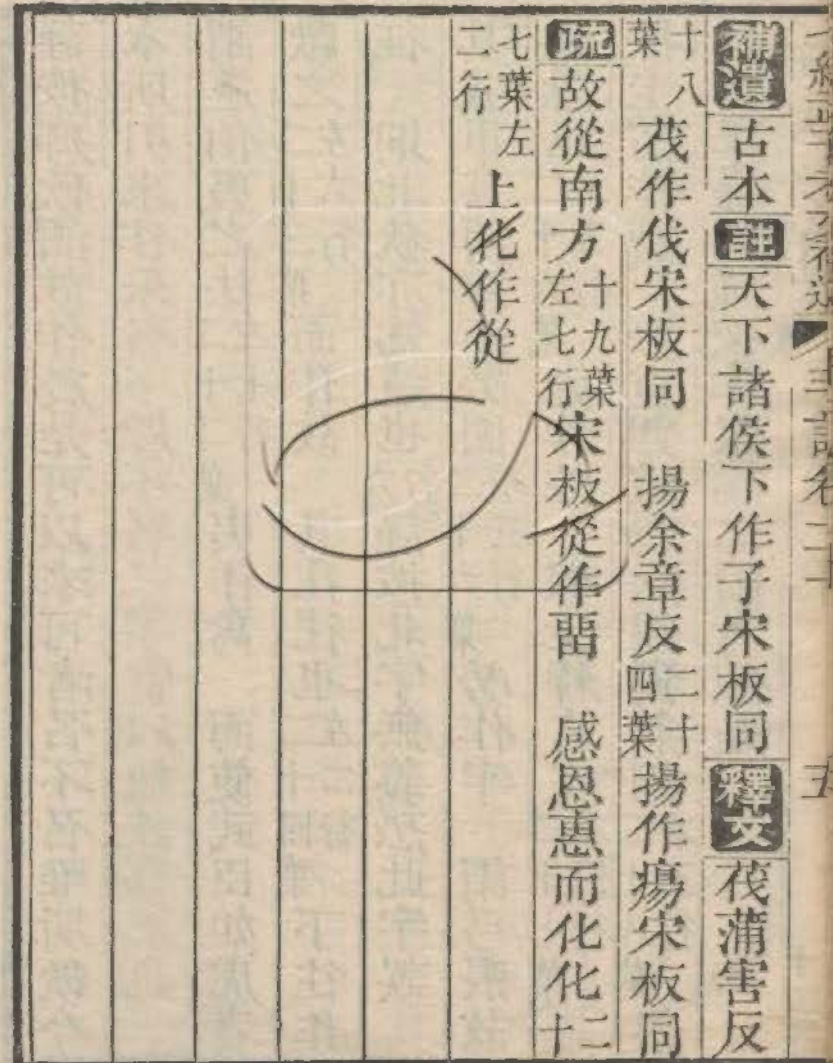 補遺古本註天下諸侯下作子宋板同釋文茷蒲害反
十八葉茷作伐宋板同 揚余章反二十四葉揚作瘍宋板同
疏故從南方十九葉左七行宋板從作畱 感恩惠而化化二十
七葉左二行上化作從